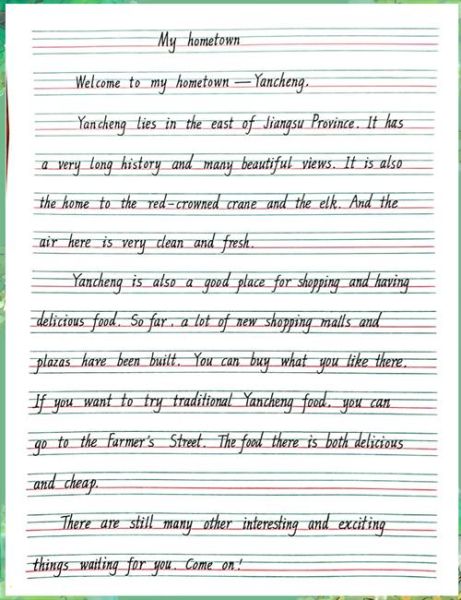 My hometown
Welcome to my hometown — Yancheng.
Yancheng lies in the east of Jiangsu Province. It has
a very long history and many beautiful views. It is also
the home to the red-crowned crane and the elk. And the
air here is very clean and fresh.
Yancheng is also a good place for shopping and having
delicious food. So far, a lot of new shopping malls and
plazas have been built. You can buy what you like there.
If you want to try traditional Yancheng food, you can
go to the Farmer's Street. The food there is both delicious
and cheap.
There are still many other interesting and exciting
things waiting for you. Come on!